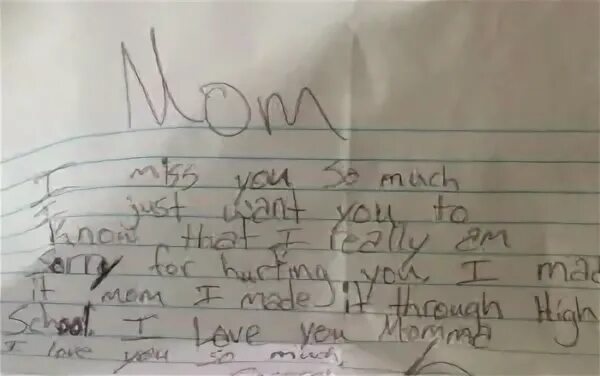 Mom
I miss you so much
I just want you to
know that I really am
sorry for hurting you I made
it mom I made it through High
School I Love you Momma
I love you so much